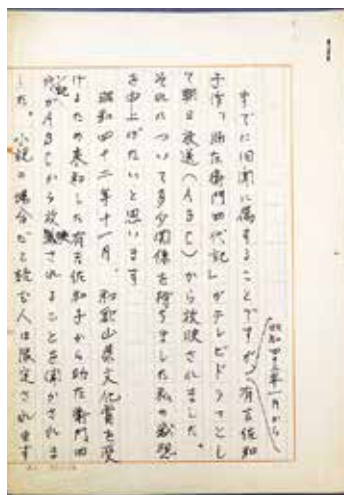 すでに旧聞に属することですが、有吉佐和
昭和四十三年一月から
子作「助左衛門四代記」がテレビドラマとし
て朝日放送(ABC)から放映されました。
それについて多少関係を持ちました私の感想
を申上げたいと思います
昭和四十二年十一月、和歌山県文化賞を受
けるため来和した有吉佐和子から助左衛門四
代記がABCから放映されることを聞かされま
した。小説の場合だと読む人は限定されます